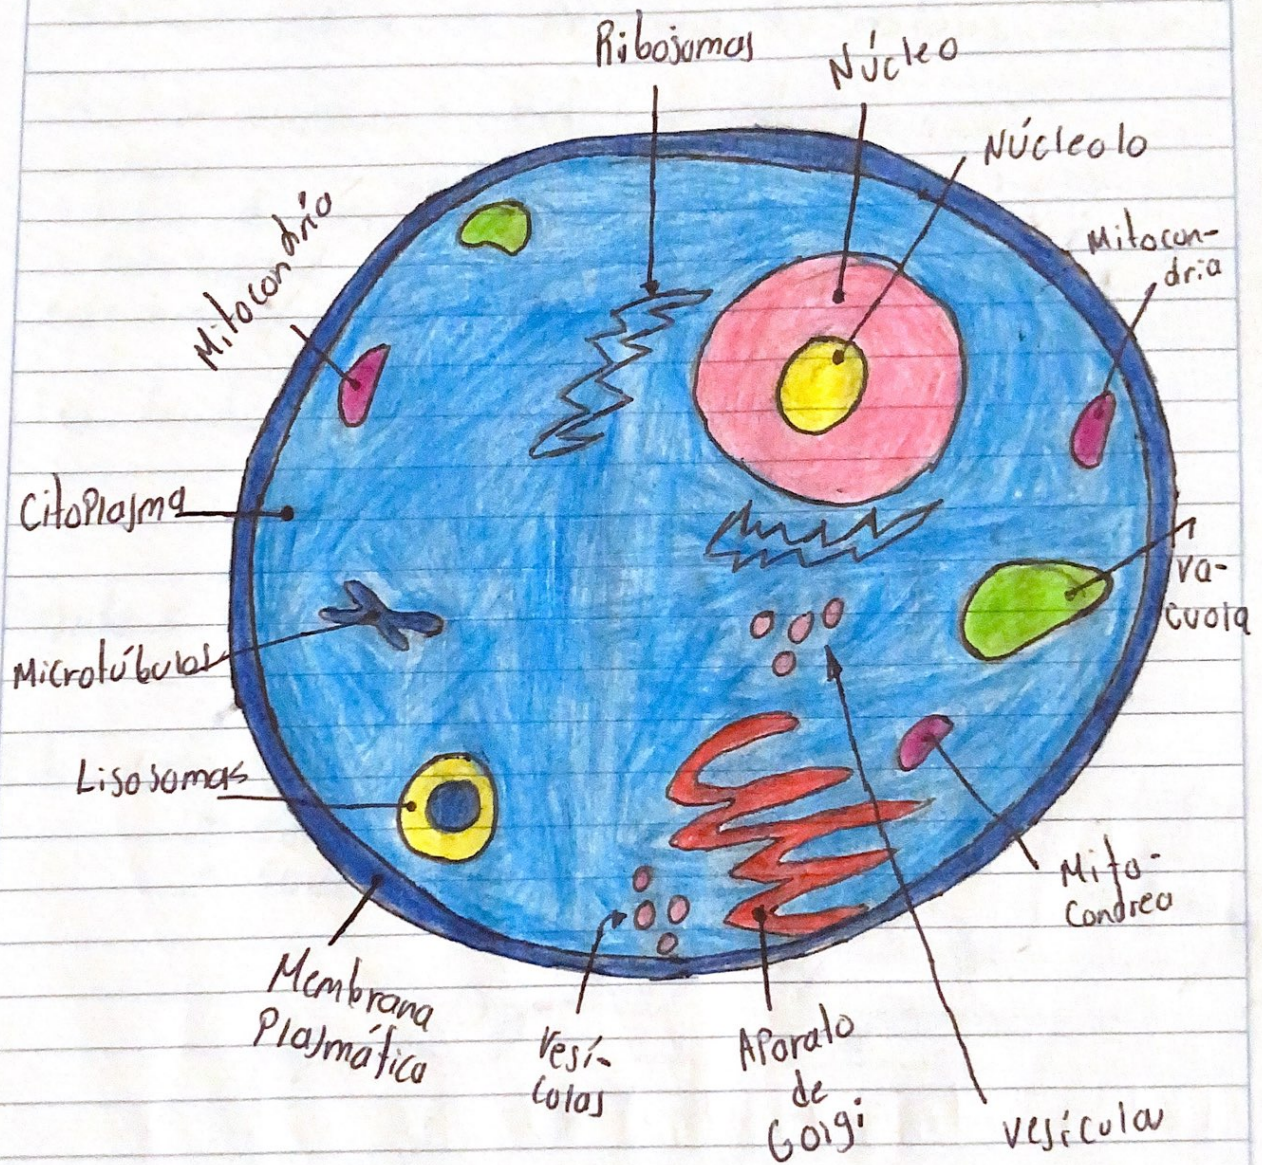 Ribosomas
Núcleo
Núcleolo
Mitocondria
Mitocon-
dria
Citoplasma
Va-
cuola
Microtúbulos
Lisosomas
Mito-
Condrea
Membrana
Plasmática
Vesí-
culas
Aparato
de
Golgi
Vesícula